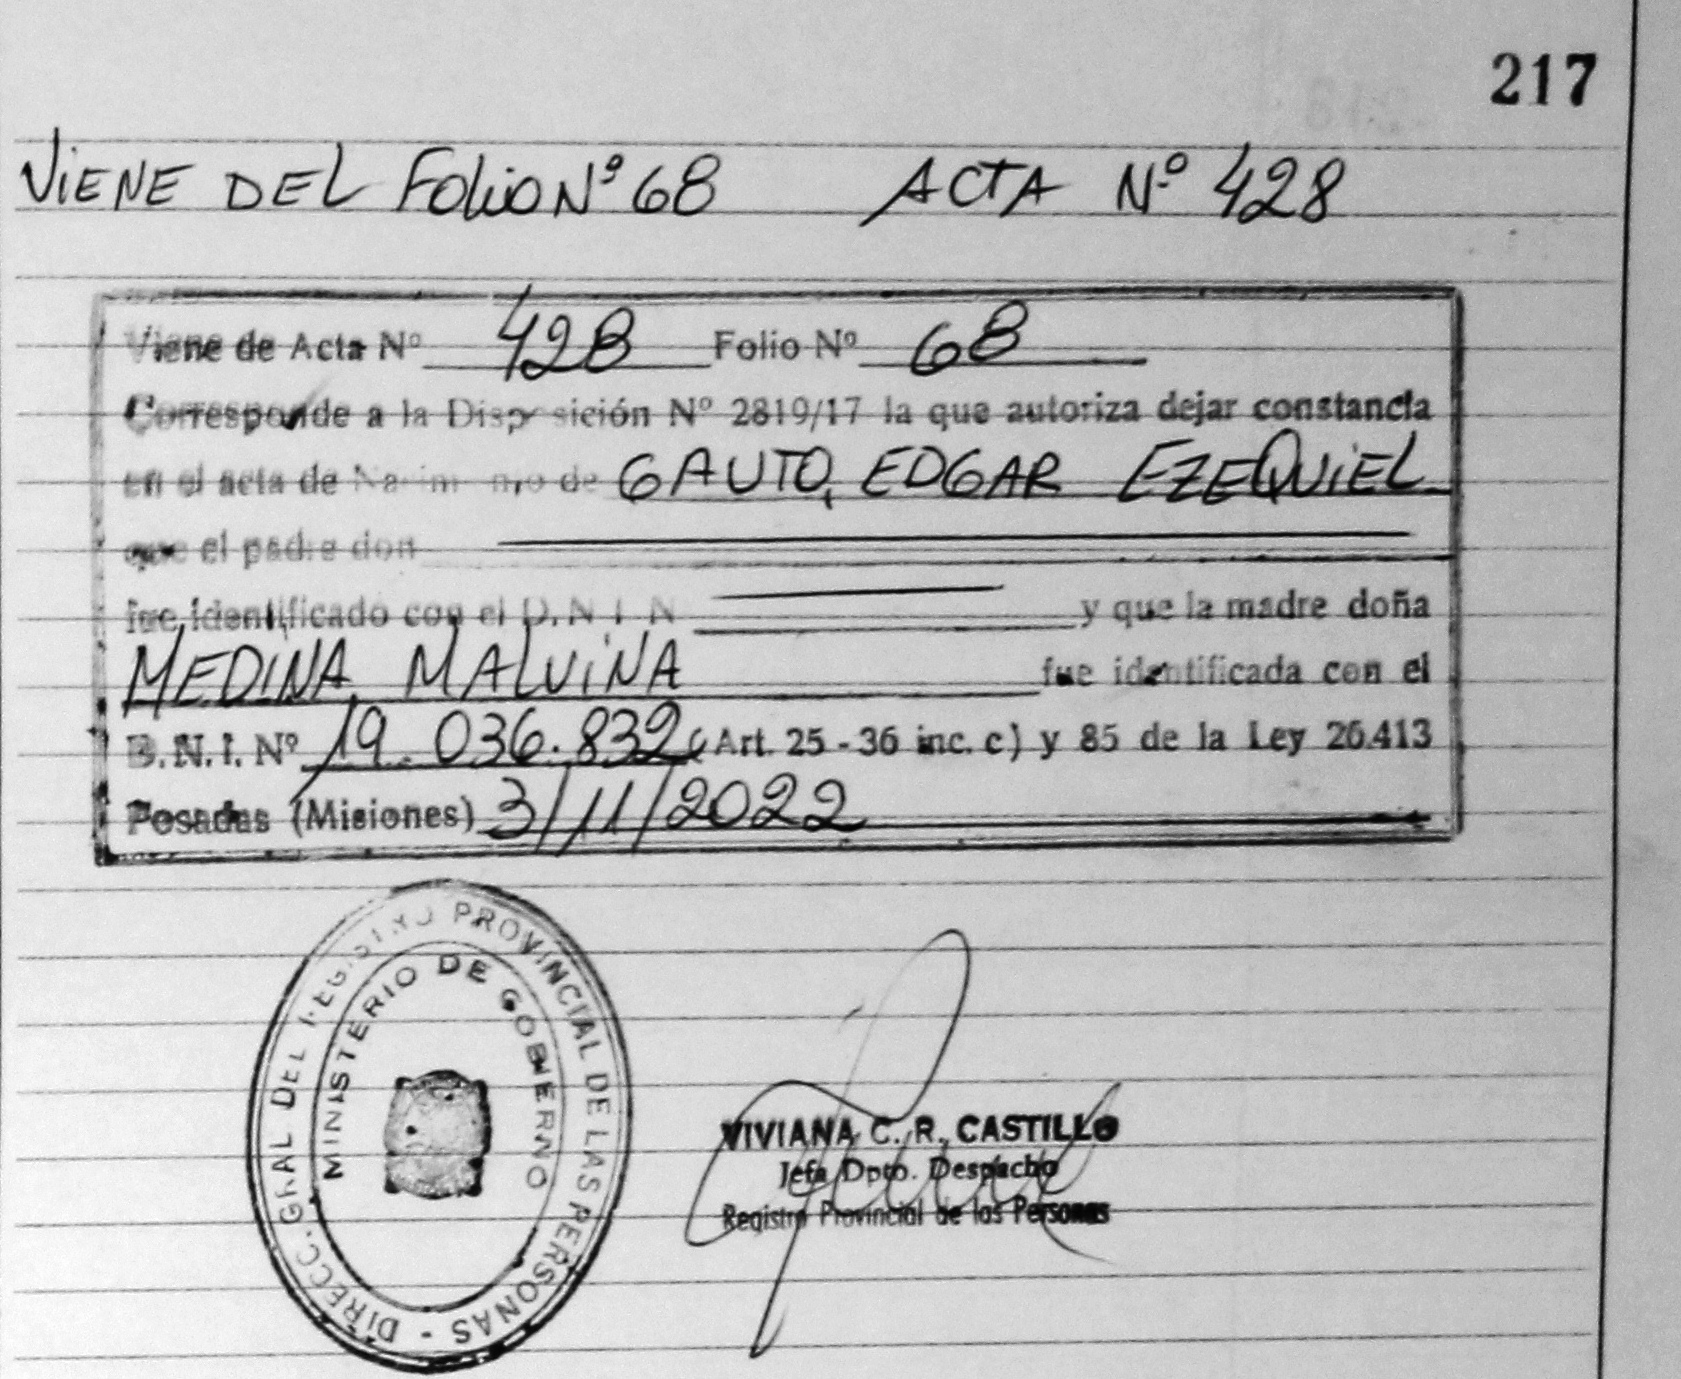 217
VIENE DEL FOLIO Nº 68 ACTA Nº 428
Viene de Acta Nº 428 Folio Nº 68
Corresponde a la Disposición Nº 2819/17 la que autoriza dejar constancia
en el acta de Nacimiento de GAUTO, EDGAR EZEQUIEL
que el padre don
fue identificado con el D.N.I. N y que la madre doña
MEDINA, MALVINA fue identificada con el
D.N.I. Nº 19.036.832 (Art. 25 - 36 inc. c) y 85 de la Ley 26.413
Posadas (Misiones) 3/11/2022
DIRECC. GRAL DEL REGISTRO PROVINCIAL DE LAS PERSONAS -
MINISTERIO DE GOBIERNO
VIVIANA C. R. CASTILLO
Jefa Dpto. Despacho
Registro Provincial de las Personas